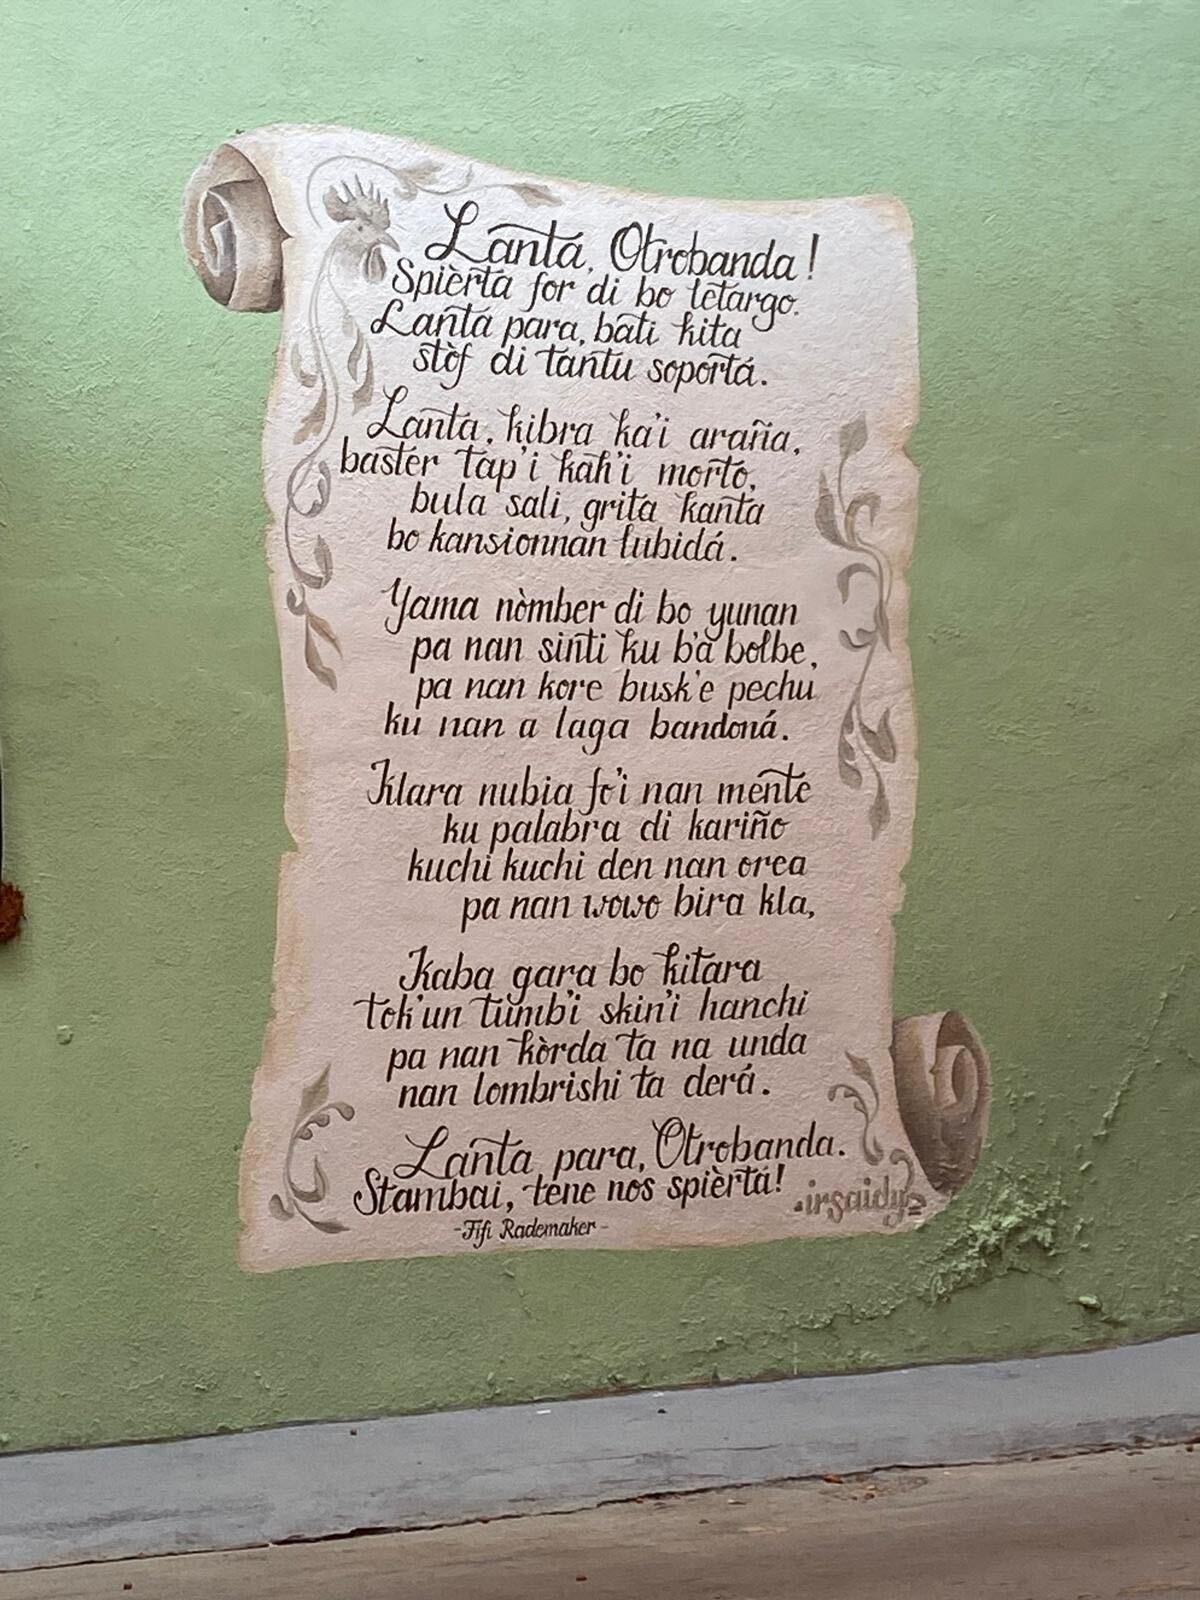 Lanta, Otrobanda!
Spièrta for di bo letargo.
Lanta para, bati kita
stòf di tantu soportá.
Lanta, kibra ka'i araña,
baster tap'i kah'i morto,
bula sali, grita kanta
bo kansionnan lubidá.
Yama nòmber di bo yunan
pa nan sinti ku b'a bolbe,
pa nan kore busk'e pechu
ku nan a laga bandoná.
Klara nubia fo'i nan mente
ku palabra di kariño
kuchi kuchi den nan orea
pa nan wowo bira kla,
Kaba gara bo kitara
tok'un tumb'i skin'i hanchi
pa nan kòrda ta na unda
nan lombrishi ta derá.
Lanta para, Otrobanda.
Stambai, tene nos spièrtá!
-Fifi Rademaker-
.irsaidy